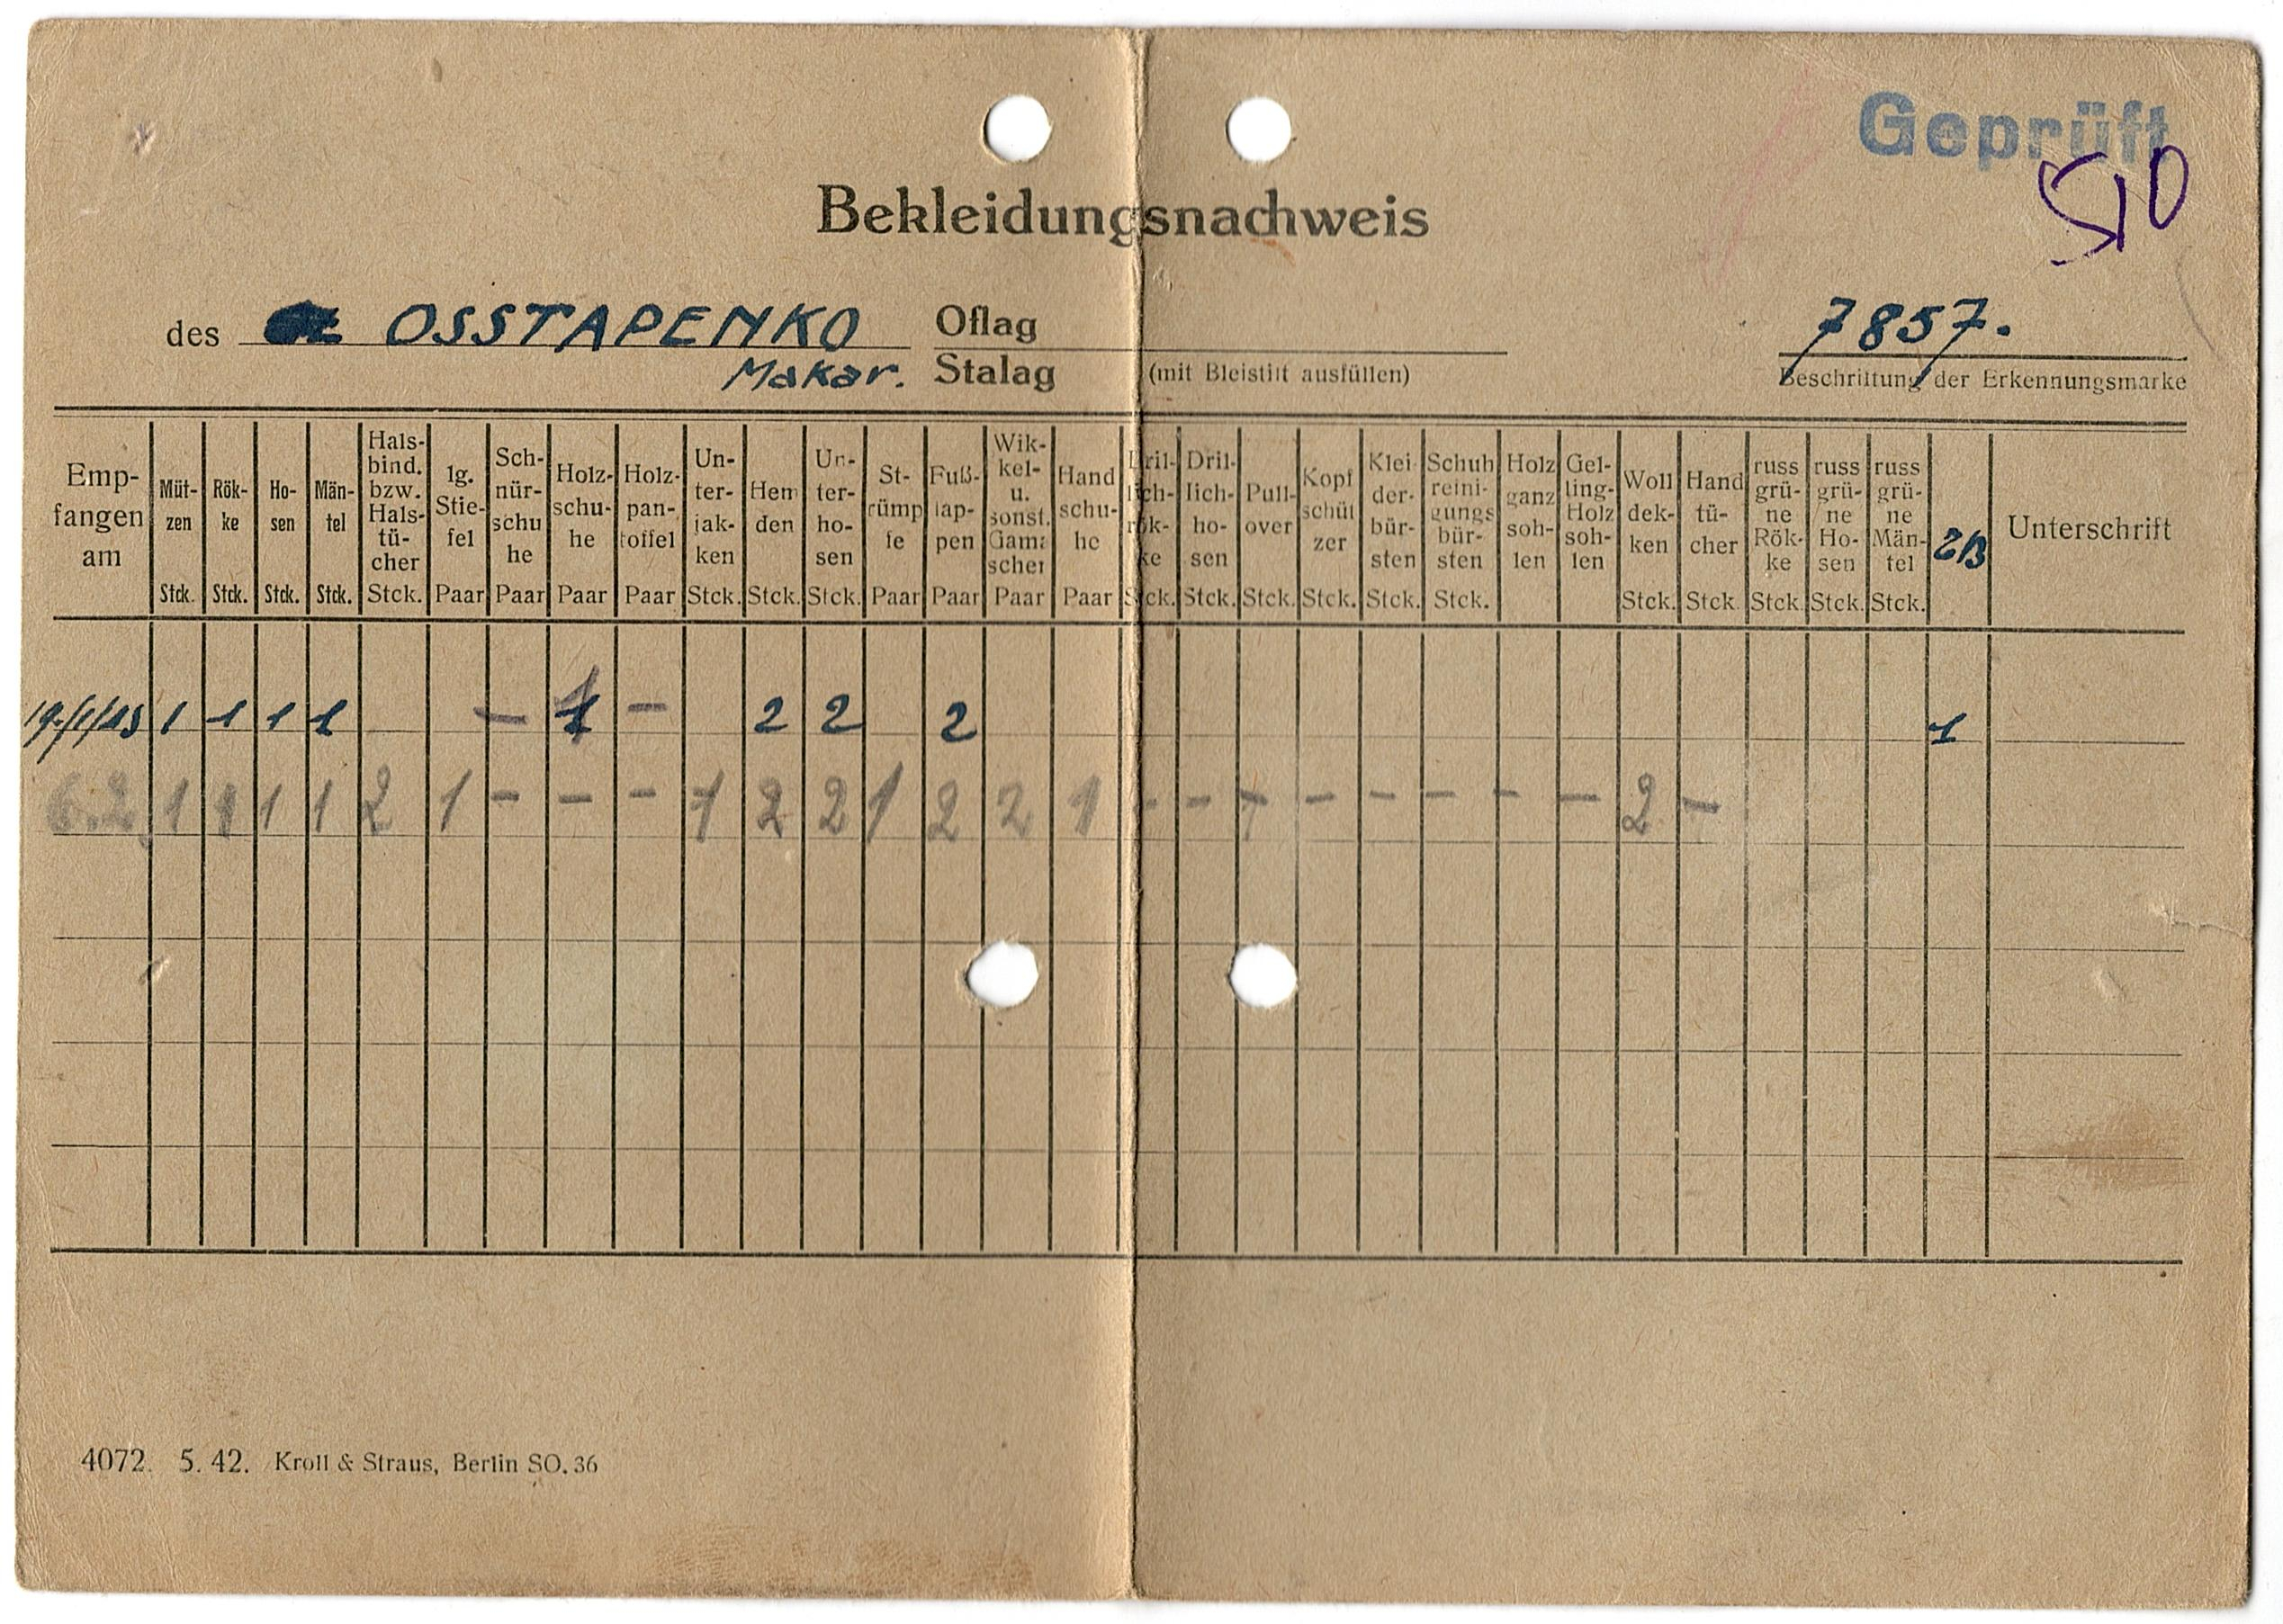 Geprüft
510
Bekleidungsnachweis
des OSSTAPENKO Oflag 7857.
Makar. Stalag (mit Bleistift ausfüllen) Beschriftung der Erkennungsmarke
Emp-
fangen
am
Müt-
zen
Stck.
Rök-
ke
Stck.
Ho-
sen
Stck.
Män-
tel
Stck.
Hals-
bind.
bzw.
Hals-
tü-
cher
Stck.
lg.
Stie-
fel
Paar
Sch-
nür-
schu
he
Paar
Holz-
schu-
he
Paar
Holz-
pan-
toffel
Paar
Un-
ter-
jak-
ken
Stck.
Hem
den
Stck.
Un-
ter-
ho-
sen
Stck.
St-
rümp
fe
Paar
Fuß-
lap-
pen
Paar
Wik-
kel-
u.
sonst.
Gama
schen
Paar
Hand
schu-
he
Paar
Dril-
lich-
rök-
ke
Stck.
Dril-
lich-
ho-
sen
Stck.
Pull-
over
Stck.
Kopf
schüt
zer
Stck.
Klei
der-
bür-
sten
Stck.
Schuh
reini-
gungs
bür-
sten
Stck.
Holz
ganz
soh-
len
Gel-
ling-
Holz
soh-
len
Woll
dek-
ken
Stck.
Hand
tü-
cher
Stck
russ
grü-
ne
Rök-
ke
Stck.
russ
grü-
ne
Ho-
sen
Stck.
russ
grü-
ne
Män-
tel
Stck.
Unterschrift
19/1/43 1 1 1 1 - 1 - 2 2 2 1
6.2. 1 1 1 1 2 1 - - - 1 2 2 1 2 2 1 - - - - - - - - 2 -
4072. 5. 42. Kroll & Straus, Berlin SO. 36